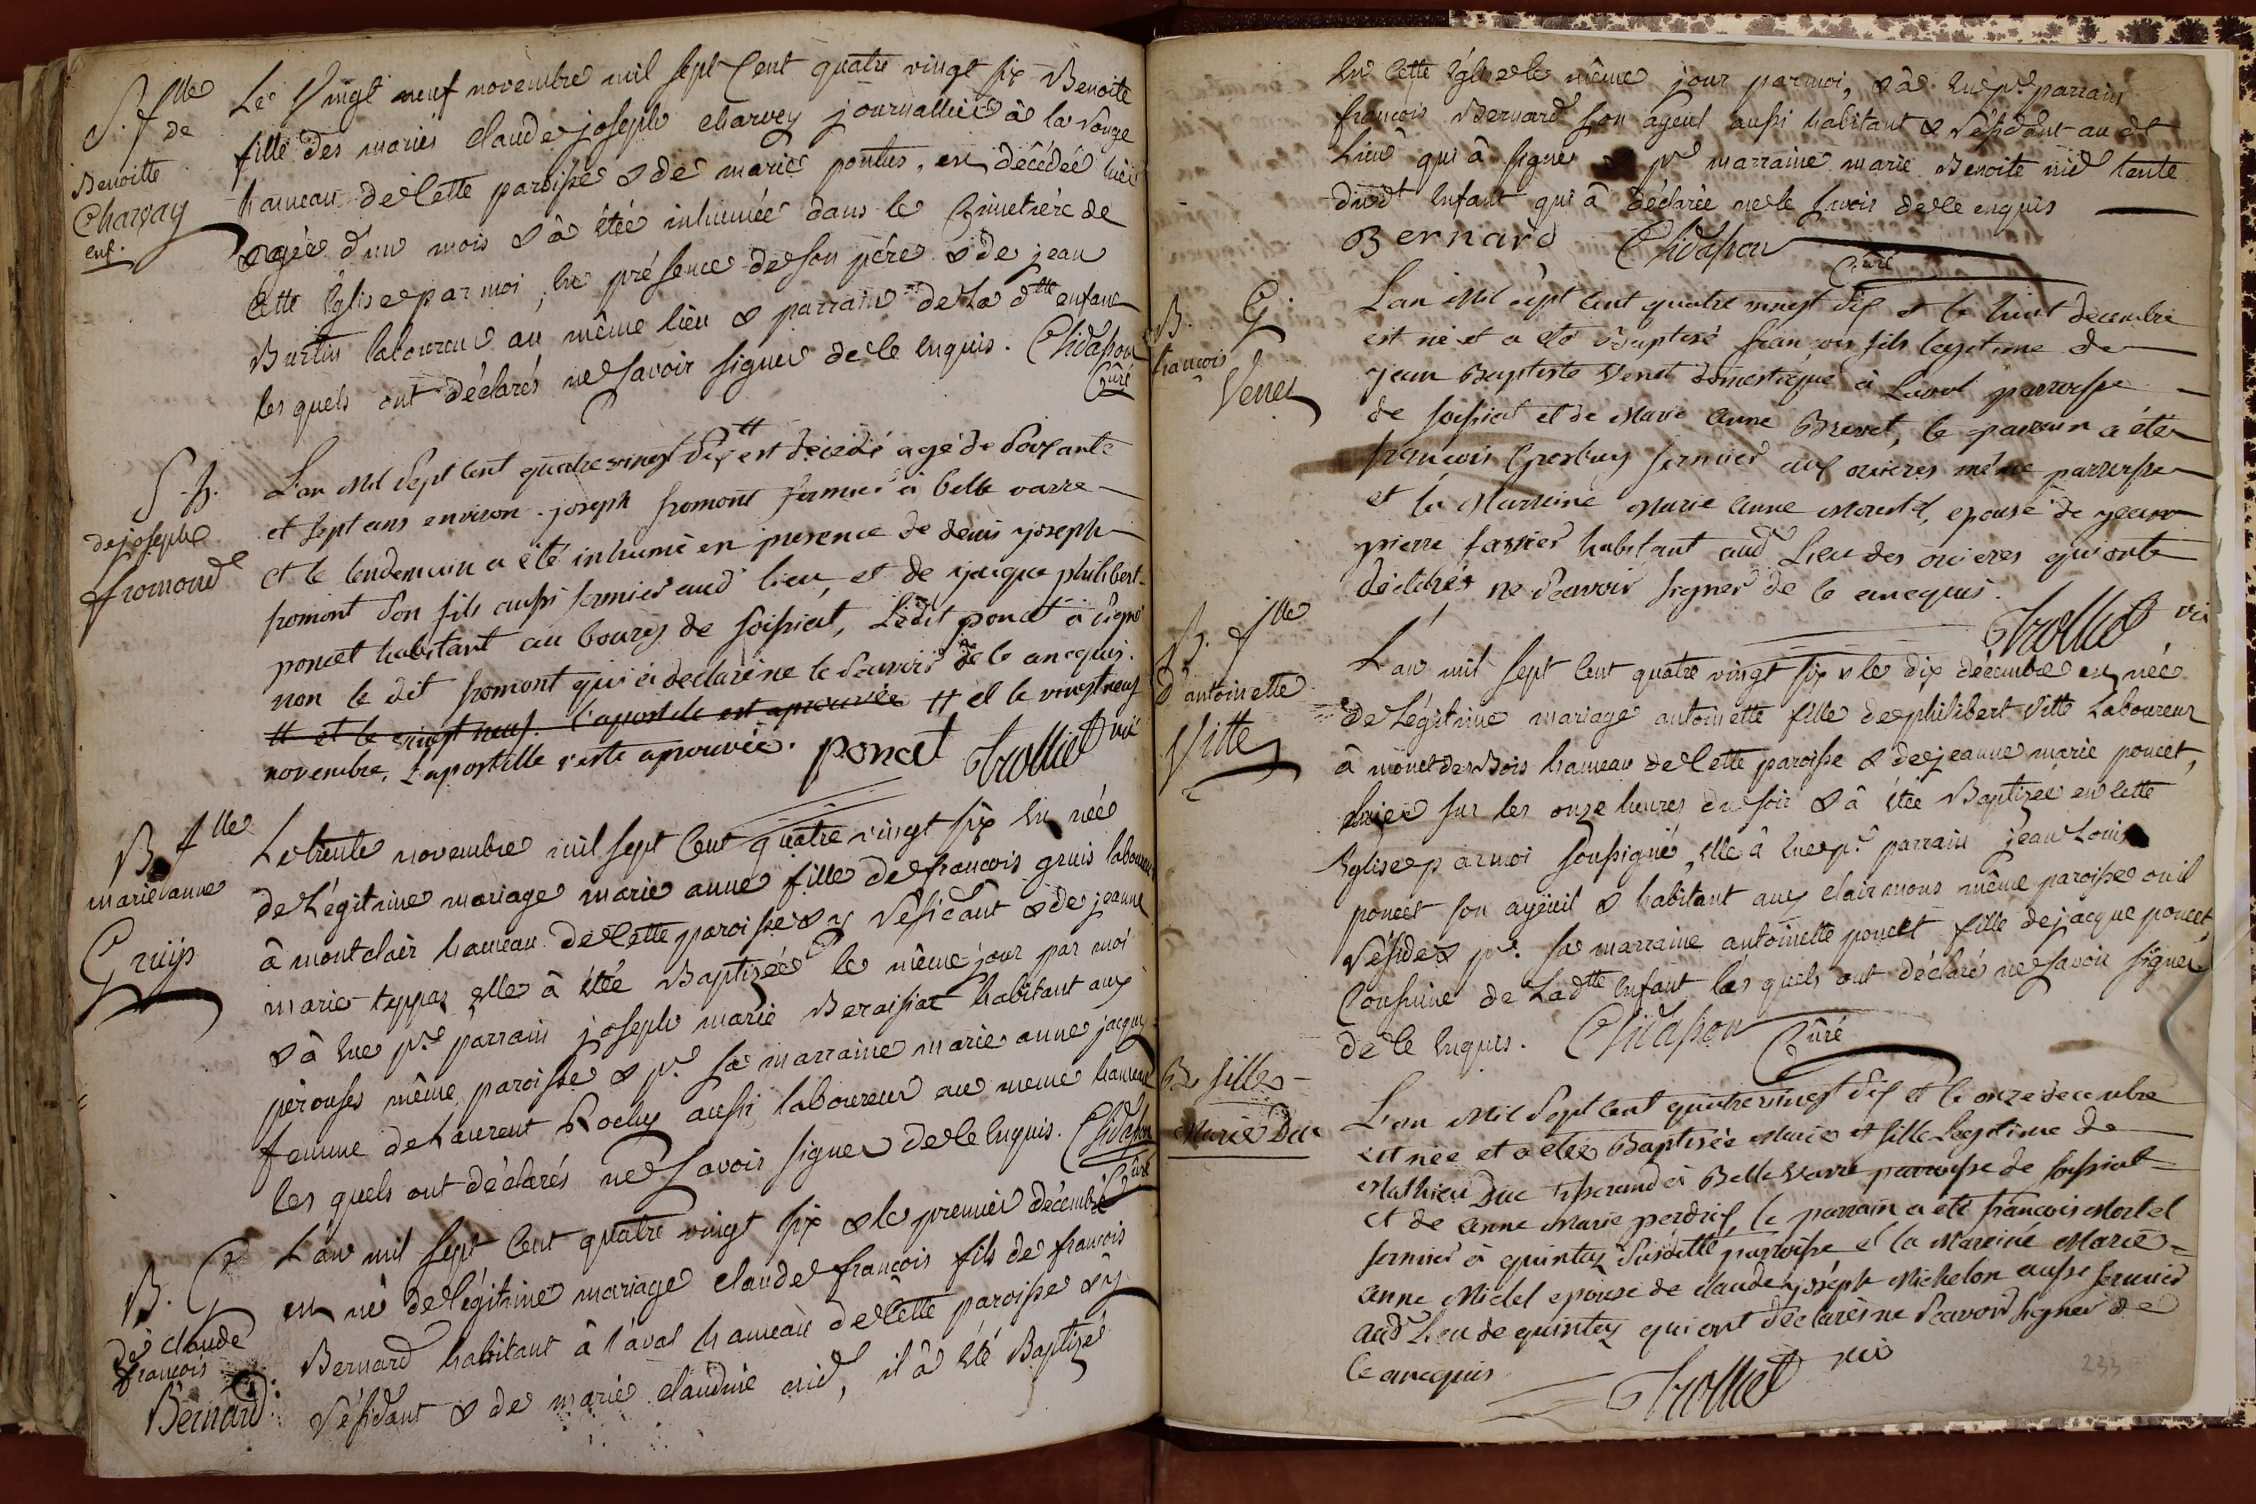 S. flle
de
Benoitte
Charvay
enf.
Le Vingt neuf novembre mil sept Cent quatre vingt six Benoite
fille des mariés claude joseph charvey journallier â la
hameau de Cette paroisse & de marie pontus, en décédée hier
agée d'un mois & â étée inhumée dans le Cimetière de
Cette Eglise par moi, en présence de son pére & de jean
Burtin laboureur au même lieu & parrain de la dtte enfant
les quels ont déclarés ne savoir signer de le enquis. Chidason
Curé
S. h.
de joseph
fromond
L'an Mil Sept Cent quatre vingt Six # est décédé agé de Soixante
et Sept ans environ joseph fromont fermier a belle varre
et le lendemain a été inhumé en presence de denis joseph
fromont Son fils aussi fermier aud lieu, et de jacque philibert
poncet habitant au bourg de Soissiat, Ledit poncet a Signé
non le dit fromont qui a declaré ne le Savoir de ce anequis.
# et le vingt neuf. l'apostile est aprouvée # et le vingt neuf
novembre, L'apostille reste aprouvée. poncet Trolliet vic
B. flle
marie anne
Gruijs
Le trente novembre mil sept Cent quatre vingt six en née
de Légitime mariage marie anne fille de francois gruis laboureur
â montclair hameau de Cette paroisse & y résidant & de jeanne
marie teppaz elle â étée Baptizée le même jour par moi
& â eue pr. parrain joseph marie Beraissat habitant aux
pérouses même paroisse & pr. sa marraine marie anne jacquy
femme de Laurent Rochy aussi laboureur au meme hameau
les quels ont déclarés ne savoir signer de le Enquis. Chidason
Curé
B. G
de claude
francois
Bernard
L'an mil sept Cent quatre vingt six & le premier décembre
en né de légitime mariage claude francois fils de francois
Bernard habitant â l'aval hameau de Cette paroisse & y
résidant & de marie claudine nid, il â été Baptizé
en Cette Eglise le même jour par moi, & â eu pr. parrain
francois Bernard son ayeul aussi habitant & résidant au dt
Lieu qui â signé & pr marraine marie Benoite nid tante
dudt Enfant qui â déclarée ne le savoir de le enquis
Bernard Chidason
Curé
B. G.
francois
Venet
L'an Mil sept Cent quatre vingt Six & le huit decembre
est né et a été Baptisé francois fils legitime de
Jean Baptiste Venet domestique à Laval parroisse
de soissiat et de Marie Anne Brevet, le parrain a été
francois fermier aux ouieres même parroisse
et la Marreine Marie Anne epouse de jean
pierre habitant aud Lieu des ouieres qui ont
déclarés ne Scavoir signer de ce anequis.
Trolliet vic
B. flle
d'antoinette
Vitte
L'an mil sept Cent quatre vingt six & le dix décembre en née
de Légitime mariage antoinette fille de philibert Vitte Laboureur
â monet des Bois hameau de Cette paroisse & de jeanne marie poncet,
hier sur les onze heures du soir & â étée Baptizée en Cette
Eglise par moi soussigné, elle â eue pr. parrain jean Louis
poncet son ayeuil & habitant aux clairmons même paroisse ou il
réside & pr. sa marraine antoinette poncet fille de jacque poncet
Cousine de Ladtte Enfant les quels ont déclaré ne savoir signer
de le Enquis. Chidason
Curé
B. fille
Marie Duc
L'an Mil Sept Cent quatre vingt Six et le onze decembre
est née et a étée Baptisée Marie et fille Legitime de
Mathieu Duc tisserand à Belle Varre parroisse de soissiat
et de Anne Marie perdrix, le parrain a été francois Mortel
fermier à quintey Susditte parroisse et la Mareine Marie
Anne Michel epouse de claude joseph Michelon aussi fermier
aud Lieu de quintey qui ont déclarés ne Scavoir signer de
Ce anequis
Trolliet vic
233